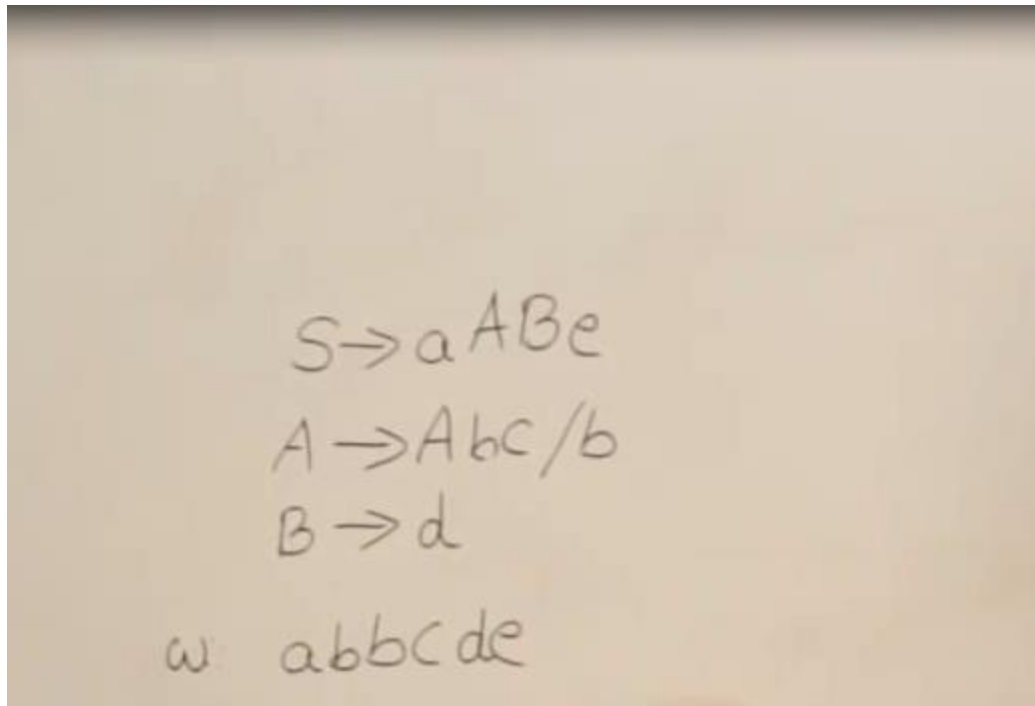 S→aABe
A→Abc/b
B→d
w abbcde